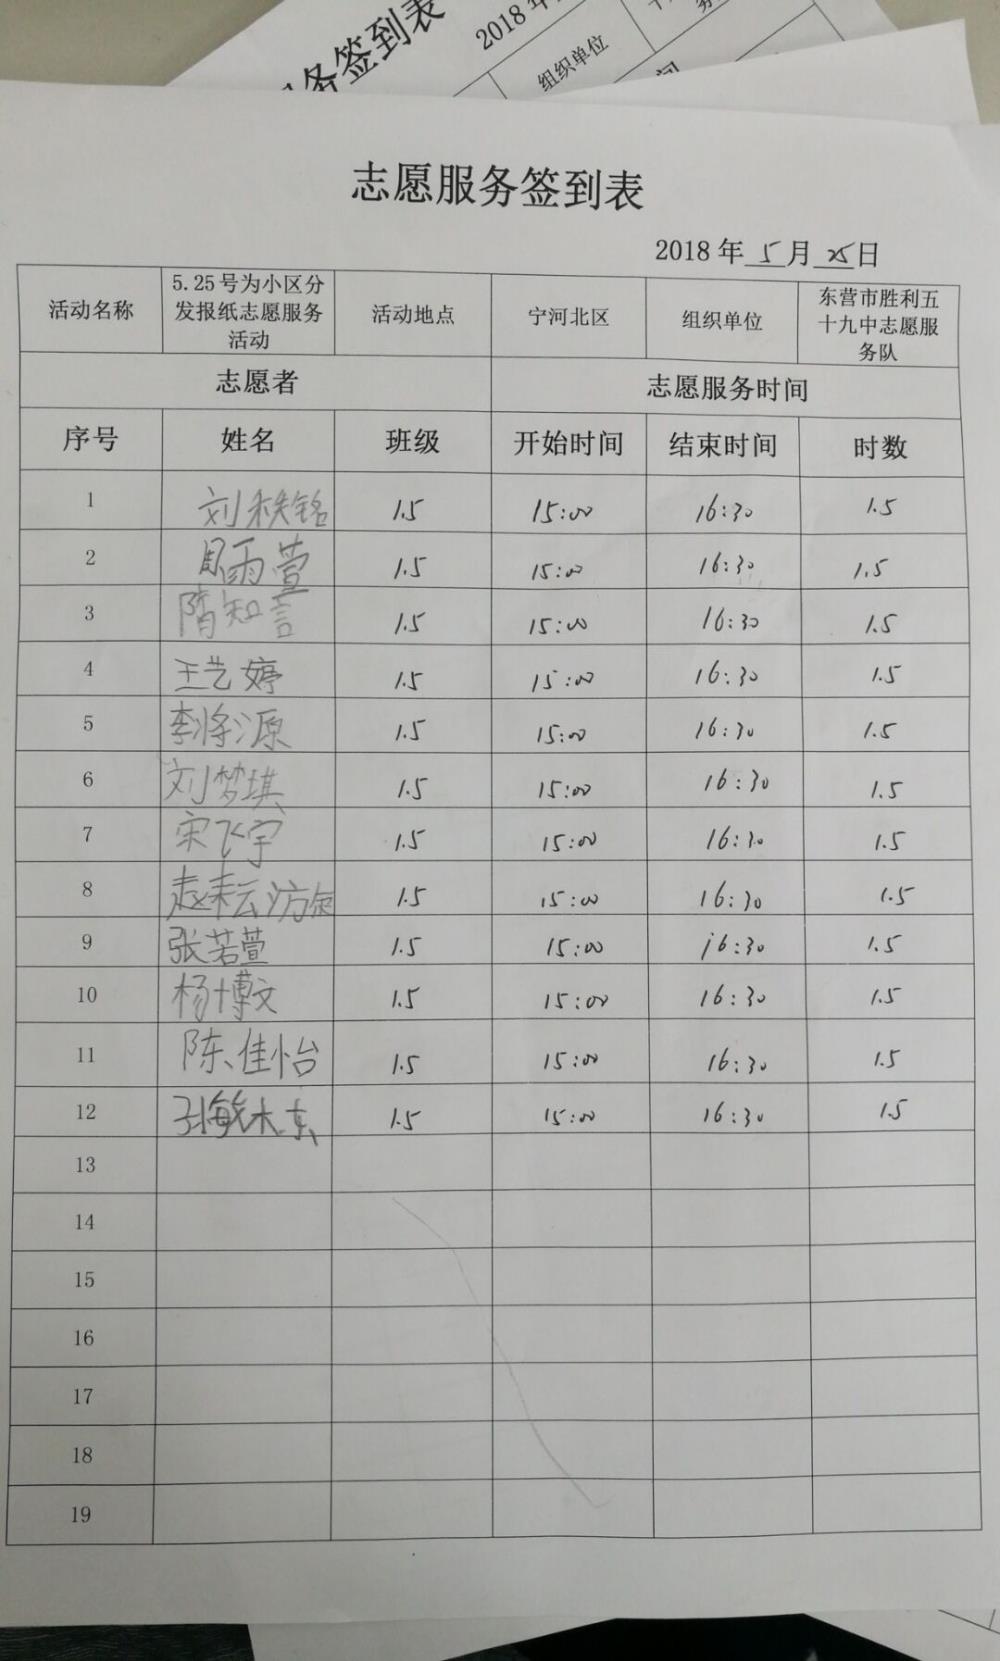 务签到表
2018年
组织单位
志愿服务签到表
2018年 5 月 25 日
活动名称 5.25号为小区分发报纸志愿服务活动 活动地点 宁河北区 组织单位 东营市胜利五十九中志愿服务队
志愿者 志愿服务时间
序号 姓名 班级 开始时间 结束时间 时数
1 刘秩铭 1.5 15:00 16:30 1.5
2 周雨萱 1.5 15:00 16:30 1.5
3 隋知言 1.5 15:00 16:30 1.5
4 王艺婷 1.5 15:00 16:30 1.5
5 李将源 1.5 15:00 16:30 1.5
6 刘梦琪 1.5 15:00 16:30 1.5
7 宋飞宇 1.5 15:00 16:30 1.5
8 1.5 15:00 16:30 1.5
9 张若萱 1.5 15:00 16:30 1.5
10 杨博文 1.5 15:00 16:30 1.5
11 陈佳怡 1.5 15:00 16:30 1.5
12 1.5 15:00 16:30 1.5
13
14
15
16
17
18
19